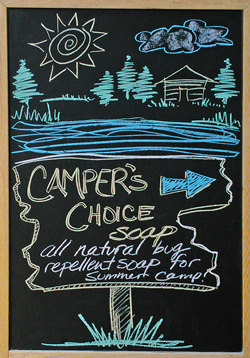 CAMPER'S
CHOICE
soap
all natural bug
repellent soap for
summer camp!